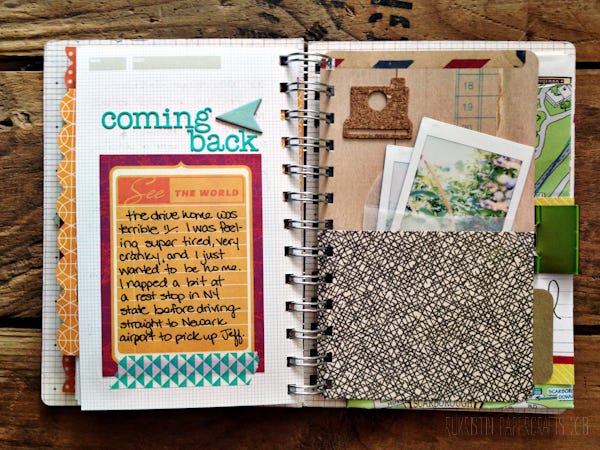 coming
back
See THE WORLD
the drive home was
terrible :/. I was feel-
ing super tired, very
cranky, and I just
wanted to be home.
I napped a bit at
a rest stop in NY
state before driving
straight to Newark
airport to pick up Jeff.
18
19
20